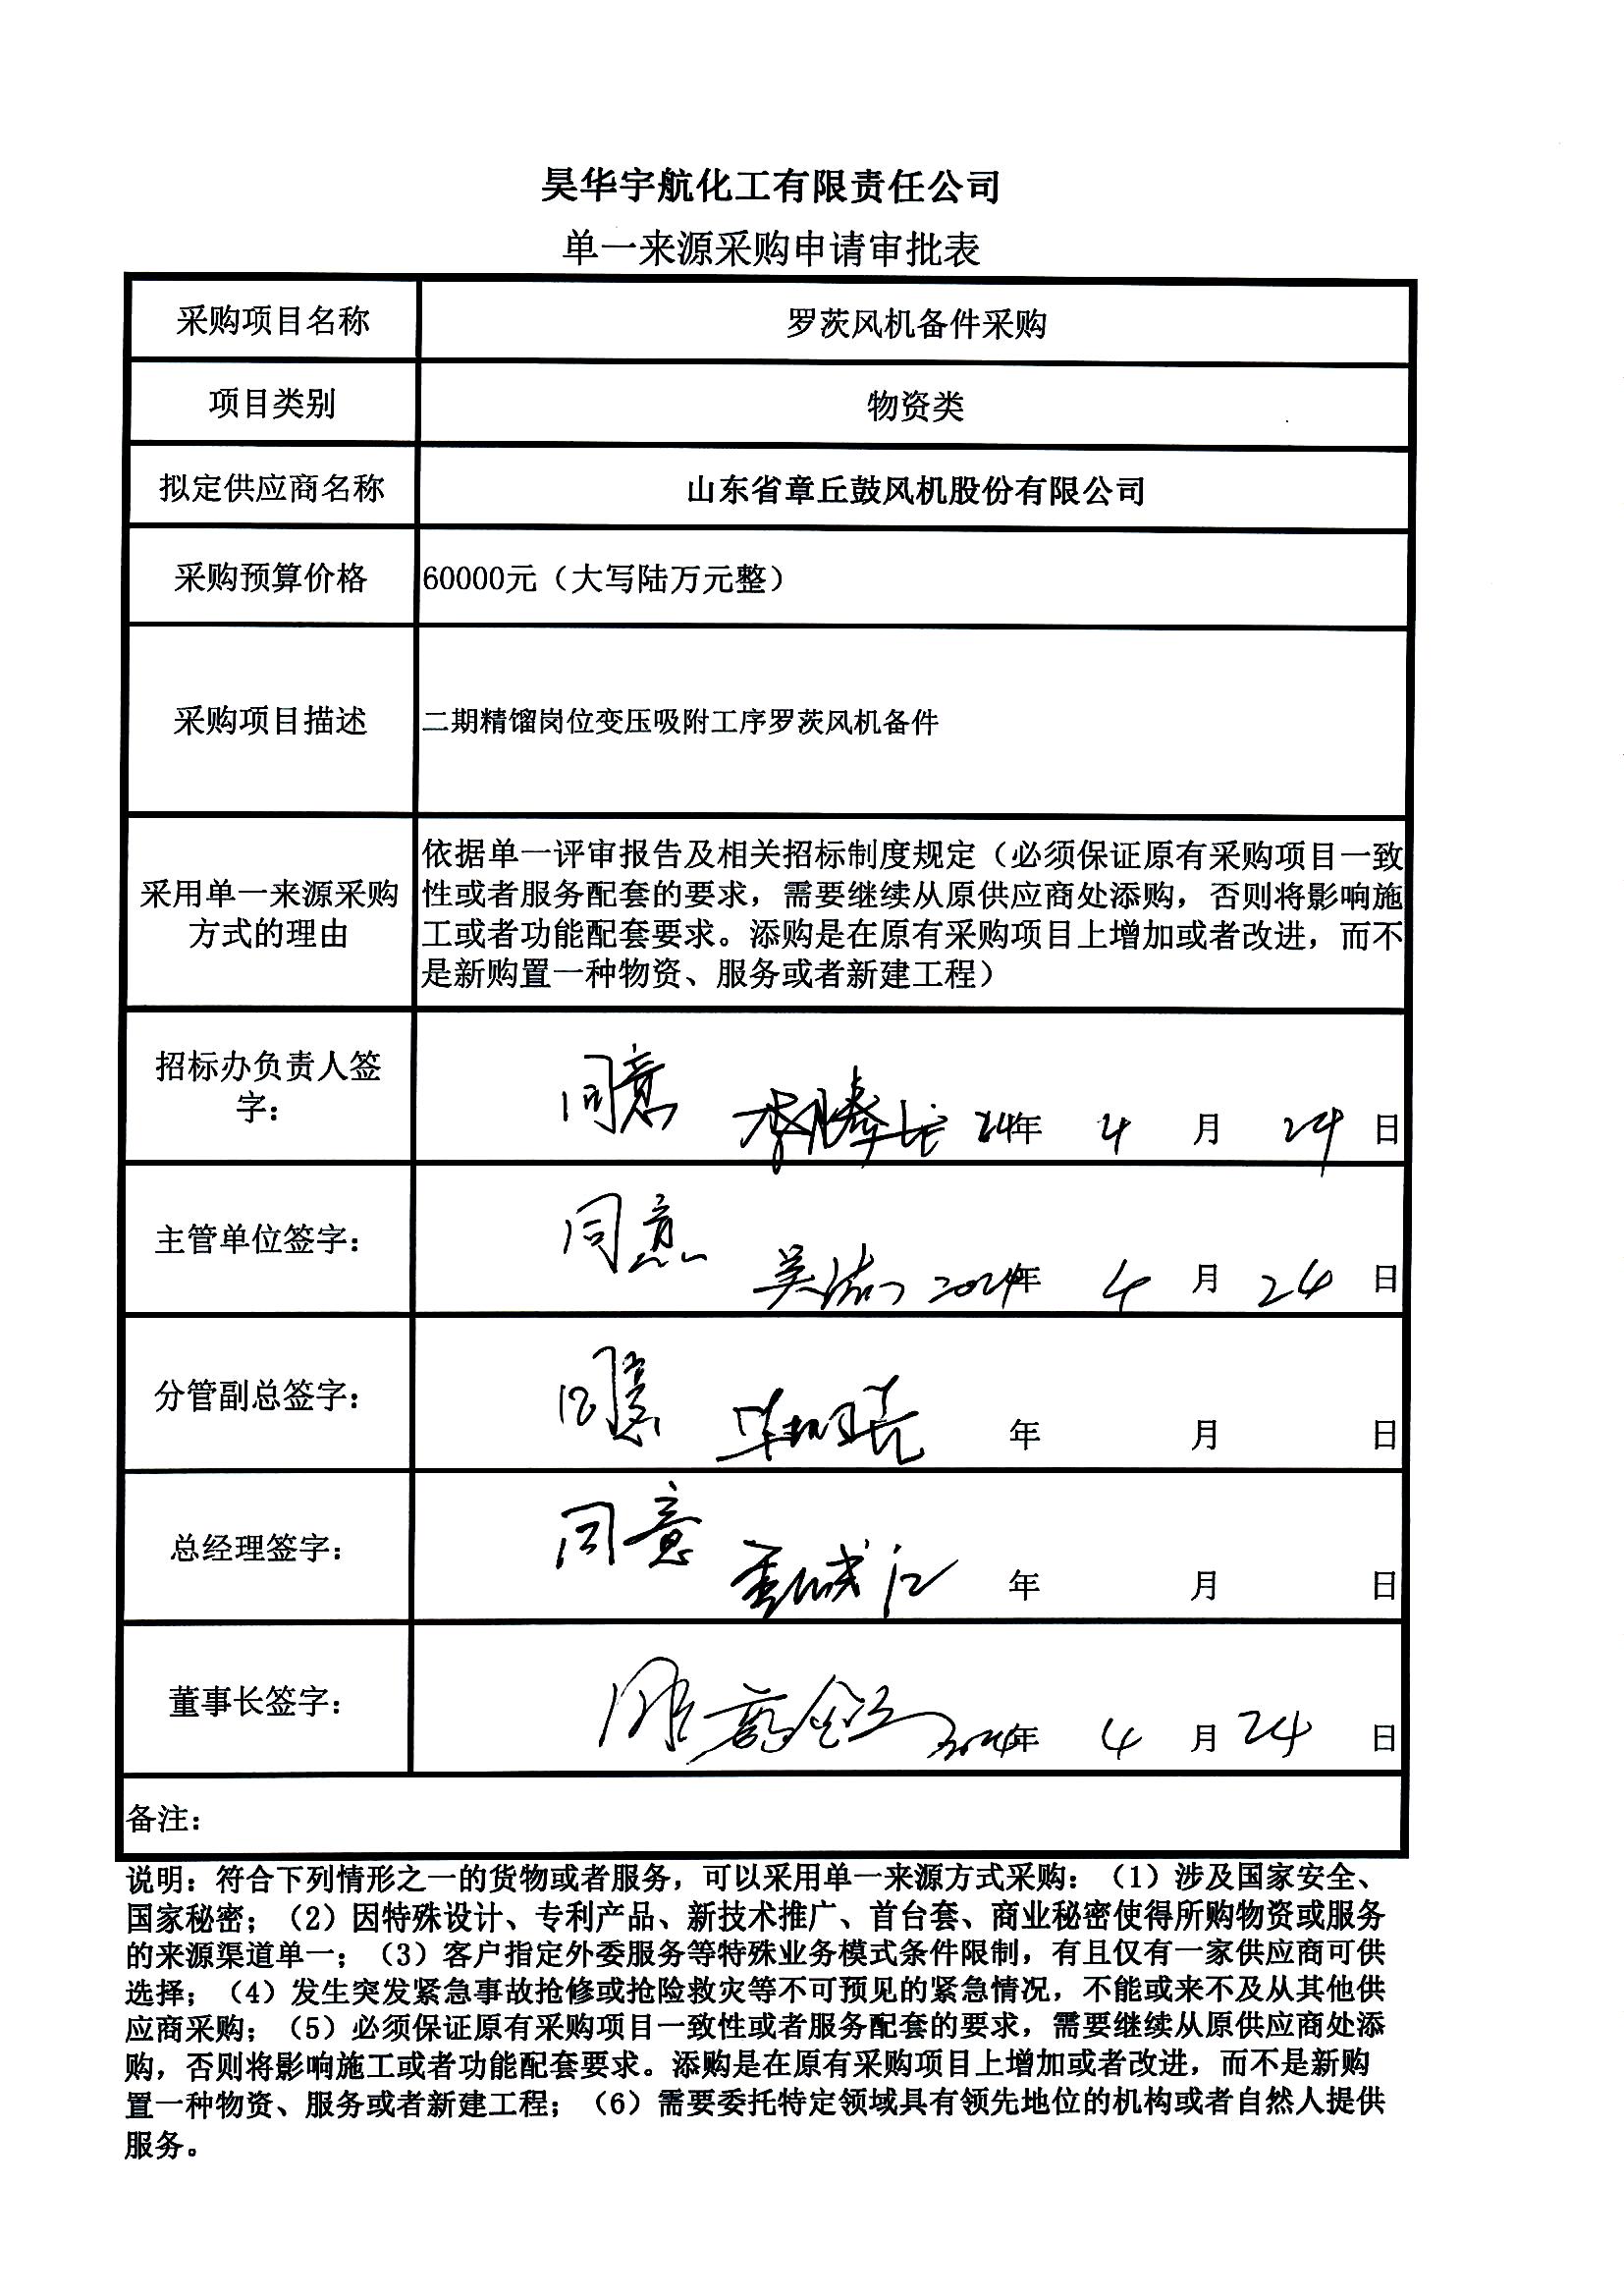 昊华宇航化工有限责任公司
单一来源采购申请审批表
采购项目名称
罗茨风机备件采购
项目类别
物资类
拟定供应商名称
山东省章丘鼓风机股份有限公司
采购预算价格
60000元（大写陆万元整）
采购项目描述
二期精馏岗位变压吸附工序罗茨风机备件
采用单一来源采购
方式的理由
依据单一评审报告及相关招标制度规定（必须保证原有采购项目一致
性或者服务配套的要求，需要继续从原供应商处添购，否则将影响施
工或者功能配套要求。添购是在原有采购项目上增加或者改进，而不
是新购置一种物资、服务或者新建工程）
招标办负责人签
字：
同意
24年 4 月 24 日
主管单位签字：
同意
吴洁 2024年 4 月 24 日
分管副总签字：
同意
年 月 日
总经理签字：
同意
年 月 日
董事长签字：
同意
2024年 4 月 24 日
备注：
说明：符合下列情形之一的货物或者服务，可以采用单一来源方式采购：（1）涉及国家安全、
国家秘密；（2）因特殊设计、专利产品、新技术推广、首台套、商业秘密使得所购物资或服务
的来源渠道单一；（3）客户指定外委服务等特殊业务模式条件限制，有且仅有一家供应商可供
选择；（4）发生突发紧急事故抢修或抢险救灾等不可预见的紧急情况，不能或来不及从其他供
应商采购；（5）必须保证原有采购项目一致性或者服务配套的要求，需要继续从原供应商处添
购，否则将影响施工或者功能配套要求。添购是在原有采购项目上增加或者改进，而不是新购
置一种物资、服务或者新建工程；（6）需要委托特定领域具有领先地位的机构或者自然人提供
服务。